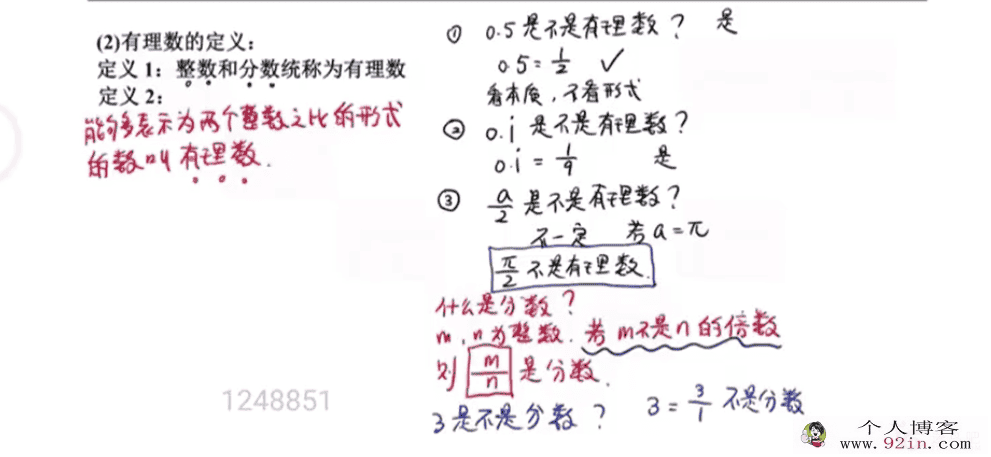 (2)有理数的定义：
定义 1：整数和分数统称为有理数
定义 2：
能够表示为两个整数之比的形式
的数叫有理数.
① 0.5是不是有理数？ 是
0.5=1/2 ✓
看本质，不看形式
② 0.i 是不是有理数？
0.i = 1/9 是
③ a/2 是不是有理数？
不一定 若a=π
π/2 不是有理数.
什么是分数？
m,n为整数. 若m不是n的倍数
则 m/n 是分数.
3是不是分数？ 3=3/1 不是分数
1248851
个人博客
www.92in.com